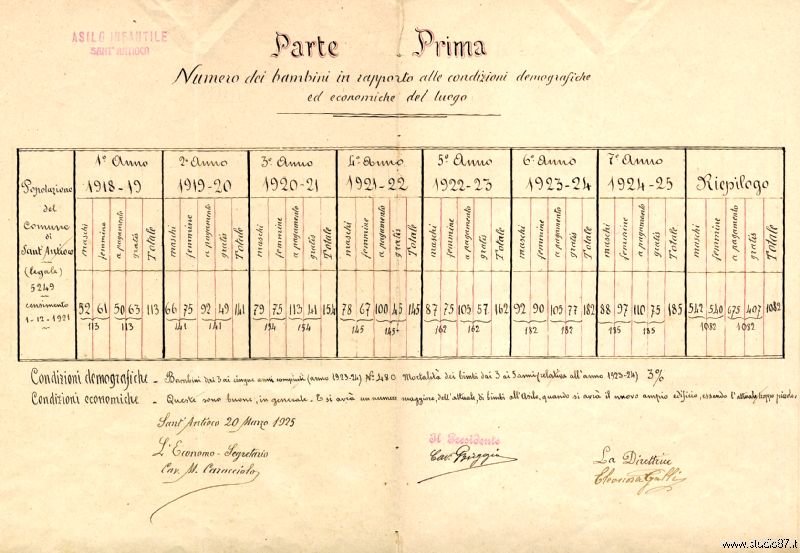 ASILO INFANTILE
SANT'ANTIOCO
Parte Prima
Numero dei bambini in rapporto alle condizioni demografiche
ed economiche del luogo
Popolazione
del
Comune
di
Sant'Antioco
(legale)
5249
censimento
1-12-1921
1º Anno 2º Anno 3º Anno 4º Anno 5º Anno 6º Anno 7º Anno
1918-19 1919-20 1920-21 1921-22 1922-23 1923-24 1924-25 Riepilogo
maschi femmine a pagamento gratis Totale maschi femmine a pagamento gratis Totale maschi femmine a pagamento gratis Totale maschi femmine a pagamento gratis Totale maschi femmine a pagamento gratis Totale maschi femmine a pagamento gratis Totale maschi femmine a pagamento gratis Totale maschi femmine a pagamento gratis Totale
52 61 50 63 113 66 75 92 49 141 79 75 113 41 154 78 67 100 45 145 87 75 105 57 162 92 90 105 77 182 88 97 110 75 185 542 540 675 407 1082
113 113 141 141 154 154 145 145 162 162 182 182 185 185 1082 1082
Condizioni demografiche - Bambini dai 3 ai cinque anni compiuti (anno 1923-24) Nº 480 Mortalità dei bimbi dai 3 ai 5 anni (relativa all'anno 1923-24) 3%
Condizioni economiche - Queste sono buone, in generale - E si avrà un numero maggiore, dell'attuale, di bimbi all'Asilo, quando si avrà il nuovo ampio edificio, essendo l'attuale troppo piccolo.
Sant'Antioco 20 Marzo 1925
L'Economo-Segretario
Cav. M. Caracciolo
Il Presidente
Cav.
La Direttrice
Eleonora Galli
www.studio87.it